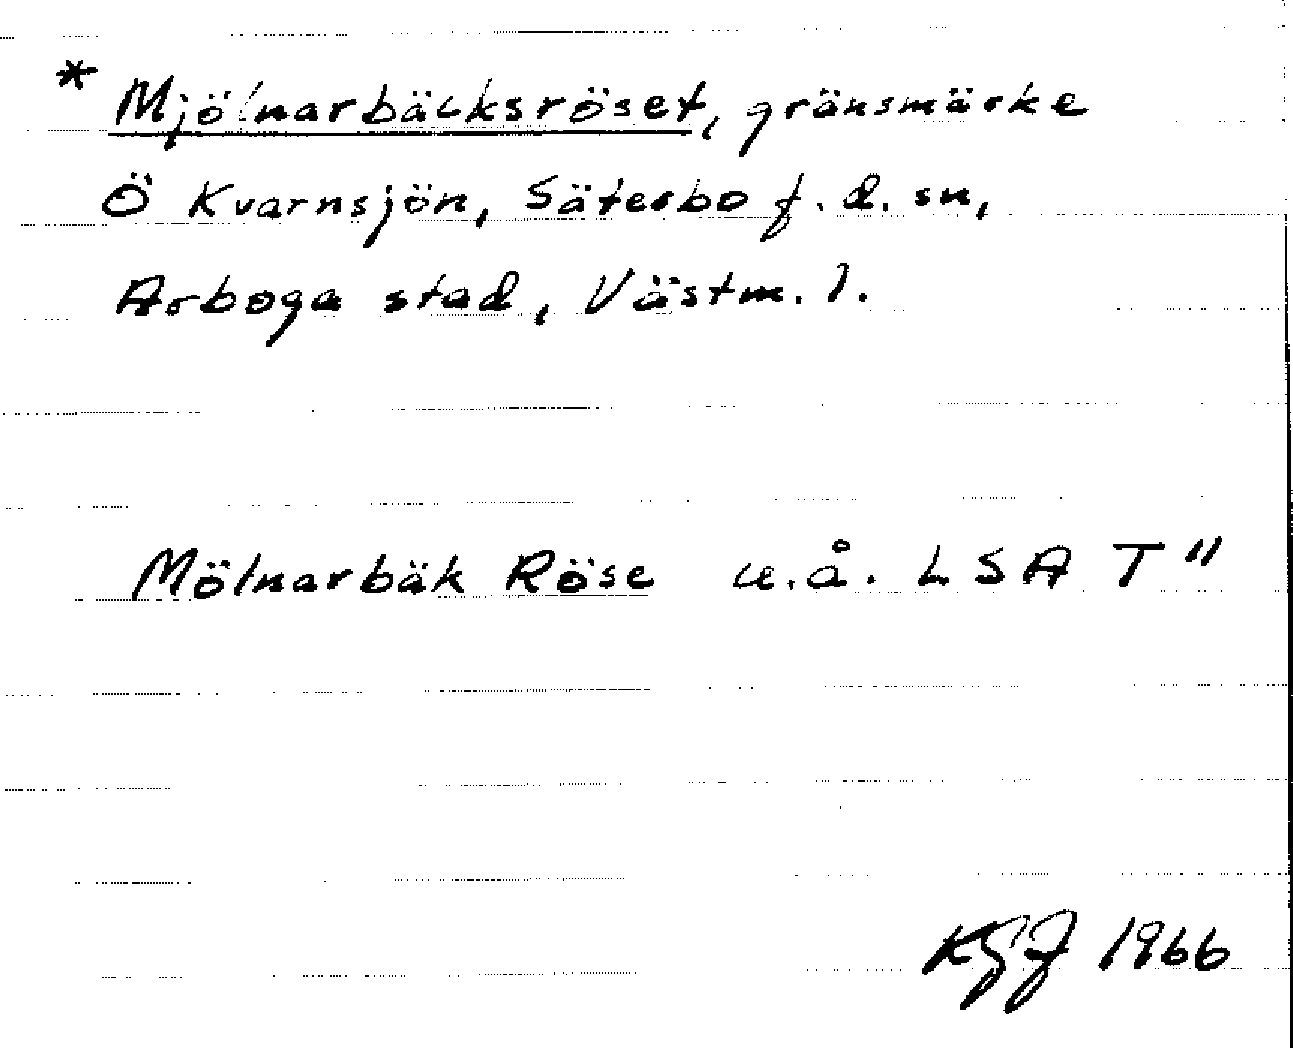 * Mjölnarbäcksröset, gränsmärke
Ö Kvarnsjön, Säterbo f.d. sn,
Arboga stad, Västm. l.
Mölnarbäk Röse u.å. LSA T"
KGJ 1966